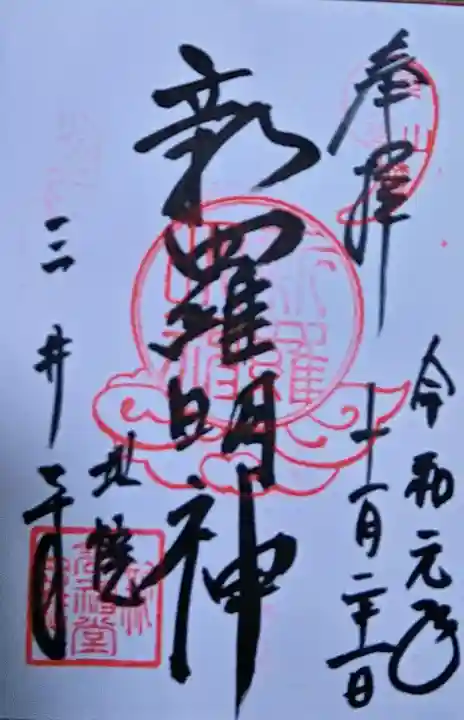 奉拝
令和元年
十一月二十一日
新羅明神
三井寺
北院